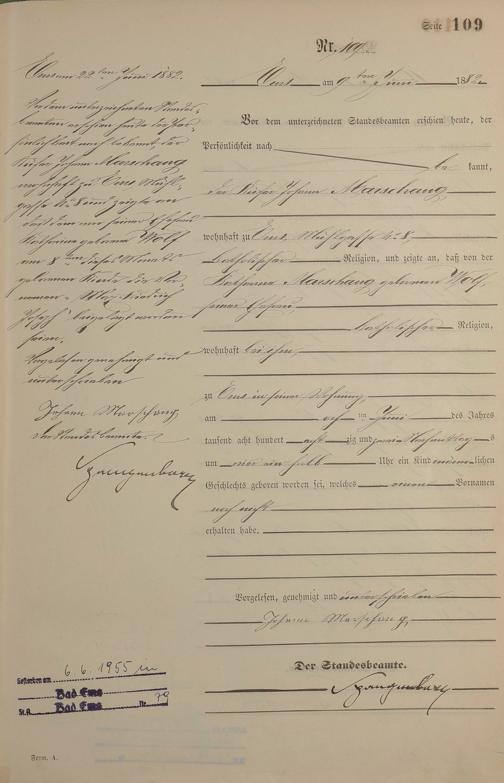 Seite 109
Nr. 109
Ems am 9ten Juni 1882
Vor dem unterzeichneten Standesbeamten erschien heute, der
Persönlichkeit nach
be kannt,
der Küfer Johann Marschang
wohnhaft zu Ems, Mühlgasse No 8,
katholischer Religion, und zeigte an, daß von der
Katharina Marschang geborenen Wolf,
seiner Ehefrau
katholischer Religion,
wohnhaft bei ihm,
zu Ems in seiner Wohnung,
am acht ten Juni des Jahres
tausend acht hundert acht zig und zwei Nachmittag s
um vier ein halb Uhr ein Kind männ lichen
Geschlechts geboren worden sei, welches einen Vornamen
noch nicht
erhalten habe.
Vorgelesen, genehmigt und unterschrieben
Johann Marschang,
Der Standesbeamte.
Ems am 22ten Juni 1882.
Vor dem unterzeichneten Standes-
beamten erschien heute der Per-
sönlichkeit nach bekannt, der
Küfer Johann Marschang
wohnhaft zu Ems Mühl-
gasse No 8 und zeigte an
daß dem von seiner Ehefrau
Katharina geborene Wolf
am 8ten dieses Monats
geborenen Kinde die Vor-
namen
Joseph beigelegt worden
seien.
Vorgelesen genehmigt und
unterschrieben
Johann Marschang
Der Standesbeamte.
Gestorben am 6.6.1955 in
Bad Ems
St.A. Bad Ems Nr. 79
Form. A.